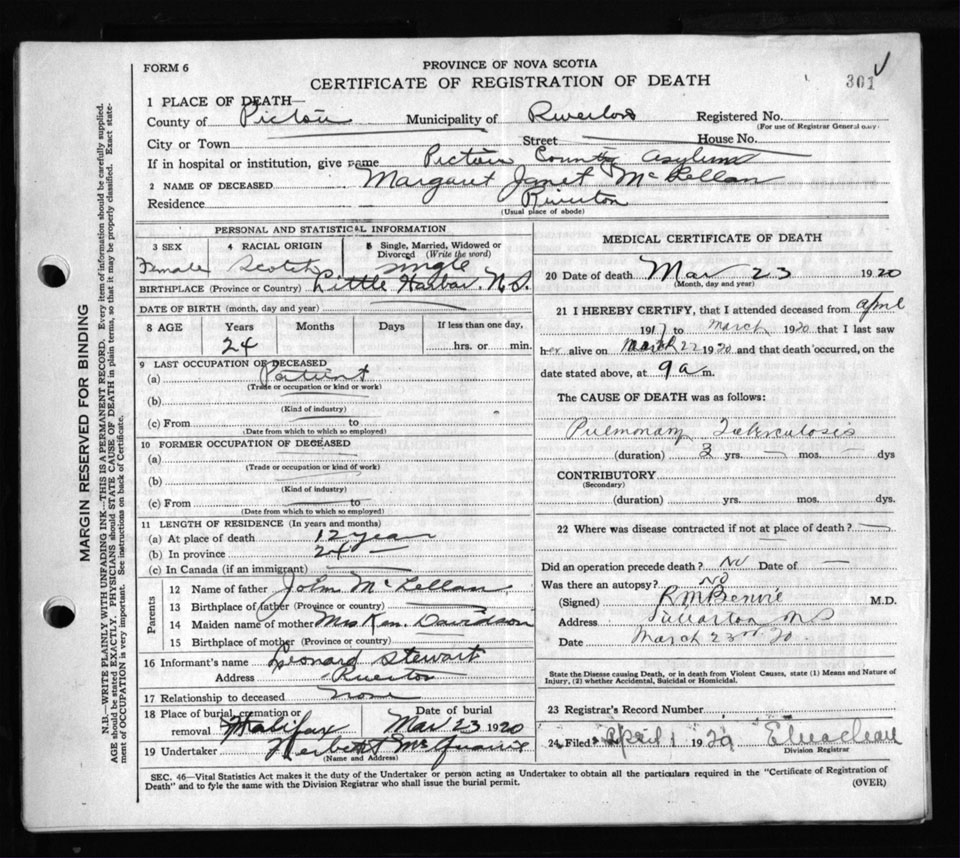 FORM 6
PROVINCE OF NOVA SCOTIA
CERTIFICATE OF REGISTRATION OF DEATH
301
1 PLACE OF DEATH—
County of Pictou Municipality of Registered No.
(For use of Registrar General only)
City or Town Street House No.
If in hospital or institution, give name Pictou County Asylum
2 NAME OF DECEASED Margaret Janet McLellan
Residence Riverton
(Usual place of abode)
PERSONAL AND STATISTICAL INFORMATION
3 SEX 4 RACIAL ORIGIN 5 Single, Married, Widowed or Divorced (Write the word)
Female Scotch Single
BIRTHPLACE (Province or Country) Little Harbor, N.S.
DATE OF BIRTH (month, day and year)
8 AGE Years Months Days If less than one day,
24 hrs. or min.
9 LAST OCCUPATION OF DECEASED
(a) Patient
(Trade or occupation or kind or work)
(b)
(Kind of industry)
(c) From to
(Date from which to which so employed)
10 FORMER OCCUPATION OF DECEASED
(a)
(Trade or occupation or kind of work)
(b)
(Kind of industry)
(c) From to
(Date from which to which so employed)
11 LENGTH OF RESIDENCE (In years and months)
(a) At place of death 12 year
(b) In province 24 —
(c) In Canada (if an immigrant) —
Parents
12 Name of father John McLellan
13 Birthplace of father (Province or country) —
14 Maiden name of mother Mrs Ken. Davidson
15 Birthplace of mother (Province or country)
16 Informant's name Leonard Stewart
Address Riverton
17 Relationship to deceased None
18 Place of burial, cremation or removal Halifax Date of burial Mar 23 1920
19 Undertaker
(Name and Address)
MEDICAL CERTIFICATE OF DEATH
20 Date of death Mar 23 1920
(Month, day and year)
21 I HEREBY CERTIFY, that I attended deceased from April
1917 to March 1920 that I last saw
her alive on March 22 1920 and that death occurred, on the
date stated above, at 9 a m.
The CAUSE OF DEATH was as follows:
Pulmonary Tuberculosis
(duration) 3 yrs. — mos. — dys
CONTRIBUTORY
(Secondary)
(duration) yrs. mos. dys.
22 Where was disease contracted if not at place of death? —
Did an operation precede death? No Date of —
Was there an autopsy? No
(Signed) R M Benvie M.D.
Address
Date March 23rd 20
State the Disease causing Death, or in death from Violent Causes, state (1) Means and Nature of
Injury, (2) whether Accidental, Suicidal or Homicidal.
23 Registrar's Record Number
24 Filed April 1 19
Division Registrar
SEC. 46—Vital Statistics Act makes it the duty of the Undertaker or person acting as Undertaker to obtain all the particulars required in the "Certificate of Registration of
Death" and to fyle the same with the Division Registrar who shall issue the burial permit. (OVER)
MARGIN RESERVED FOR BINDING
N.B.—WRITE PLAINLY WITH UNFADING INK—THIS IS A PERMANENT RECORD. Every item of information should be carefully supplied.
AGE should be stated EXACTLY. PHYSICIANS should STATE CAUSE OF DEATH in plain terms, so that it may be properly classified. Exact state-
ment of OCCUPATION is very important. See instructions on back of Certificate.